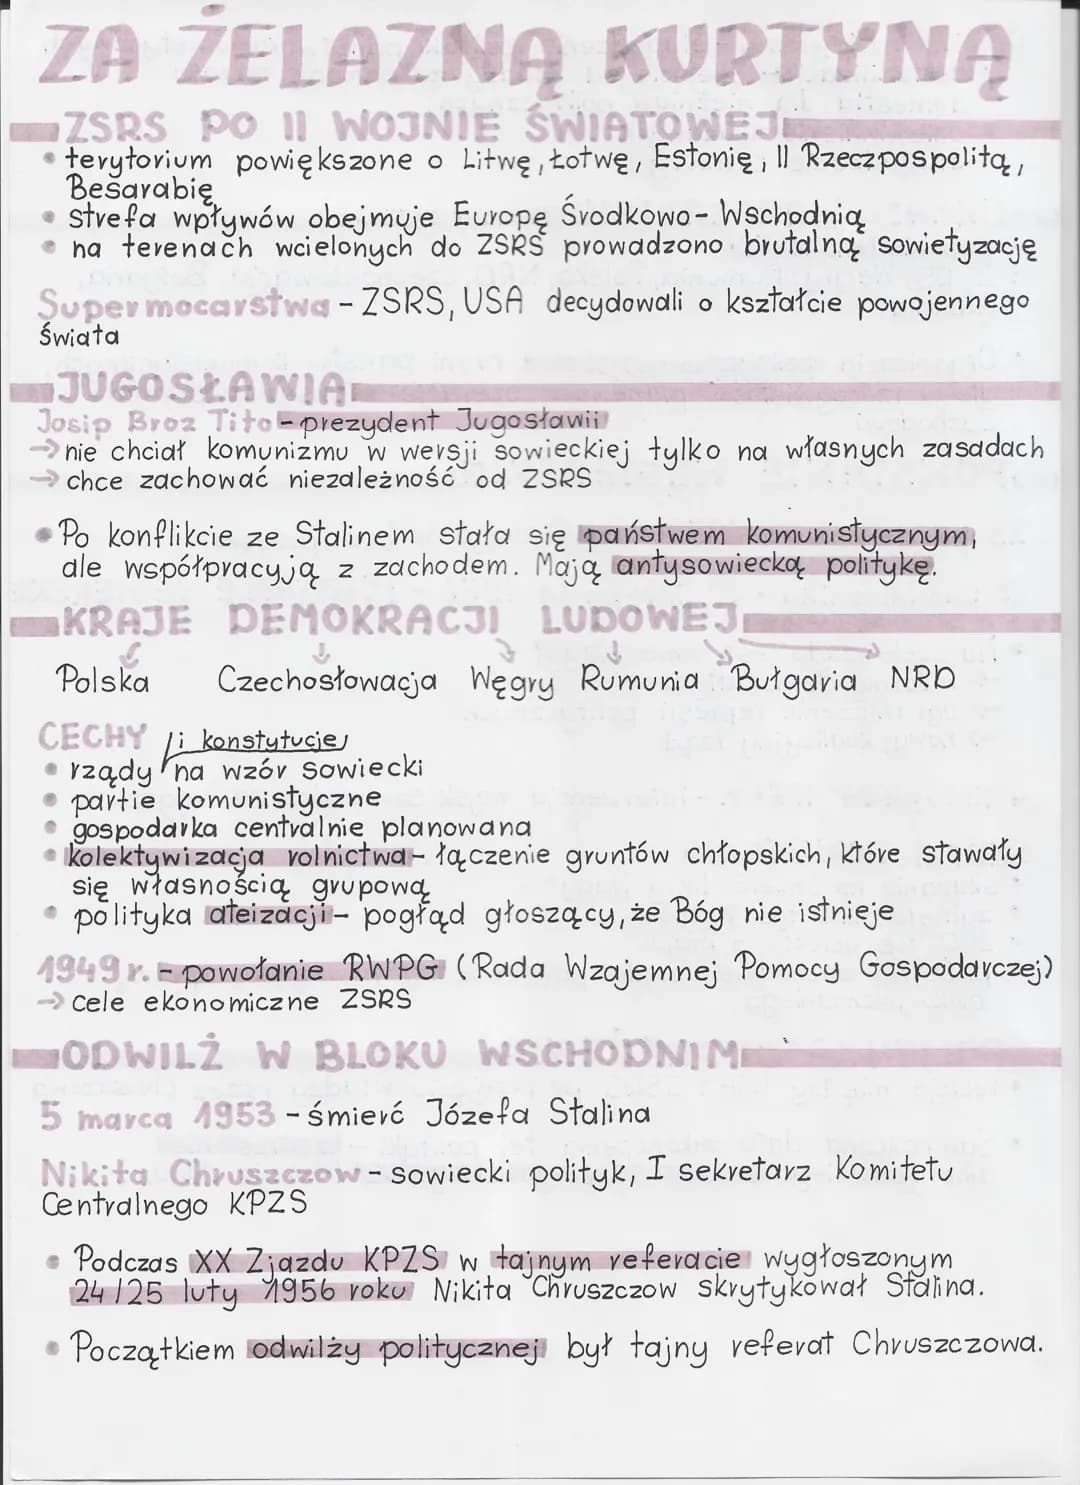 ZA ŻELAZNĄ KURTYNĄ
ZSRS PO II WOJNIE ŚWIATOWEJ
• terytorium powiększone o Litwę, Łotwę, Estonię, II Rzeczpospolitą,
Besarabię
• strefa wpływów obejmuje Europę Środkowo-Wschodnią
• na terenach wcielonych do ZSRS prowadzono brutalną sowietyzację
Supermocarstwa - ZSRS, USA decydowali o kształcie powojennego
świata
JUGOSŁAWIA
Josip Broz Tito - prezydent Jugosławii
→ nie chciał komunizmu w wersji sowieckiej tylko na własnych zasadach
→ chce zachować niezależność od ZSRS
• Po konflikcie ze Stalinem stała się państwem komunistycznym,
ale współpracyją z zachodem. Mają antysowiecką politykę.
KRAJE DEMOKRACJI LUDOWEJ
Polska Czechosłowacja Węgry Rumunia Bułgaria NRD
CECHY i konstytucje
• rządy na wzór sowiecki
• partie komunistyczne
• gospodarka centralnie planowana
• kolektywizacja rolnictwa - łączenie gruntów chłopskich, które stawały
się własnością grupową
• polityka ateizacji - pogłąd głoszący, że Bóg nie istnieje
1949 r. - powołanie RWPG (Rada Wzajemnej Pomocy Gospodarczej)
→ cele ekonomiczne ZSRS
ODWILŻ W BLOKU WSCHODNIM
5 marca 1953 - śmierć Józefa Stalina
Nikita Chruszczow - sowiecki polityk, I sekretarz Komitetu
Centralnego KPZS
• Podczas XX Zjazdu KPZS w tajnym referacie wygłoszonym
24/25 luty 1956 roku Nikita Chruszczow skrytykował Stalina.
• Początkiem odwilży politycznej był tajny referat Chruszczowa.